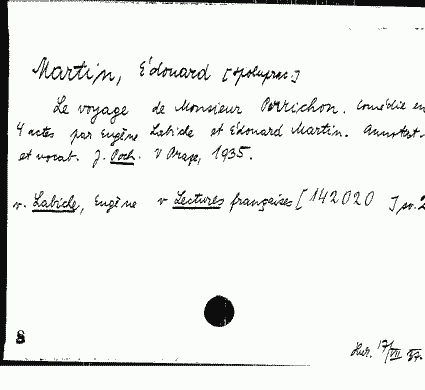 Martin, Édouard [spoluprac.]
Le voyage de Monsieur Perrichon. Comédie en
4 actes par Eugène Labiche et Édouard Martin. Annotat.
et vocab. J. Poch. V Praze, 1935.
v. Labiche, Eugène v Lectures françaises [142020 ] sv. 2
8
17/VII 57.